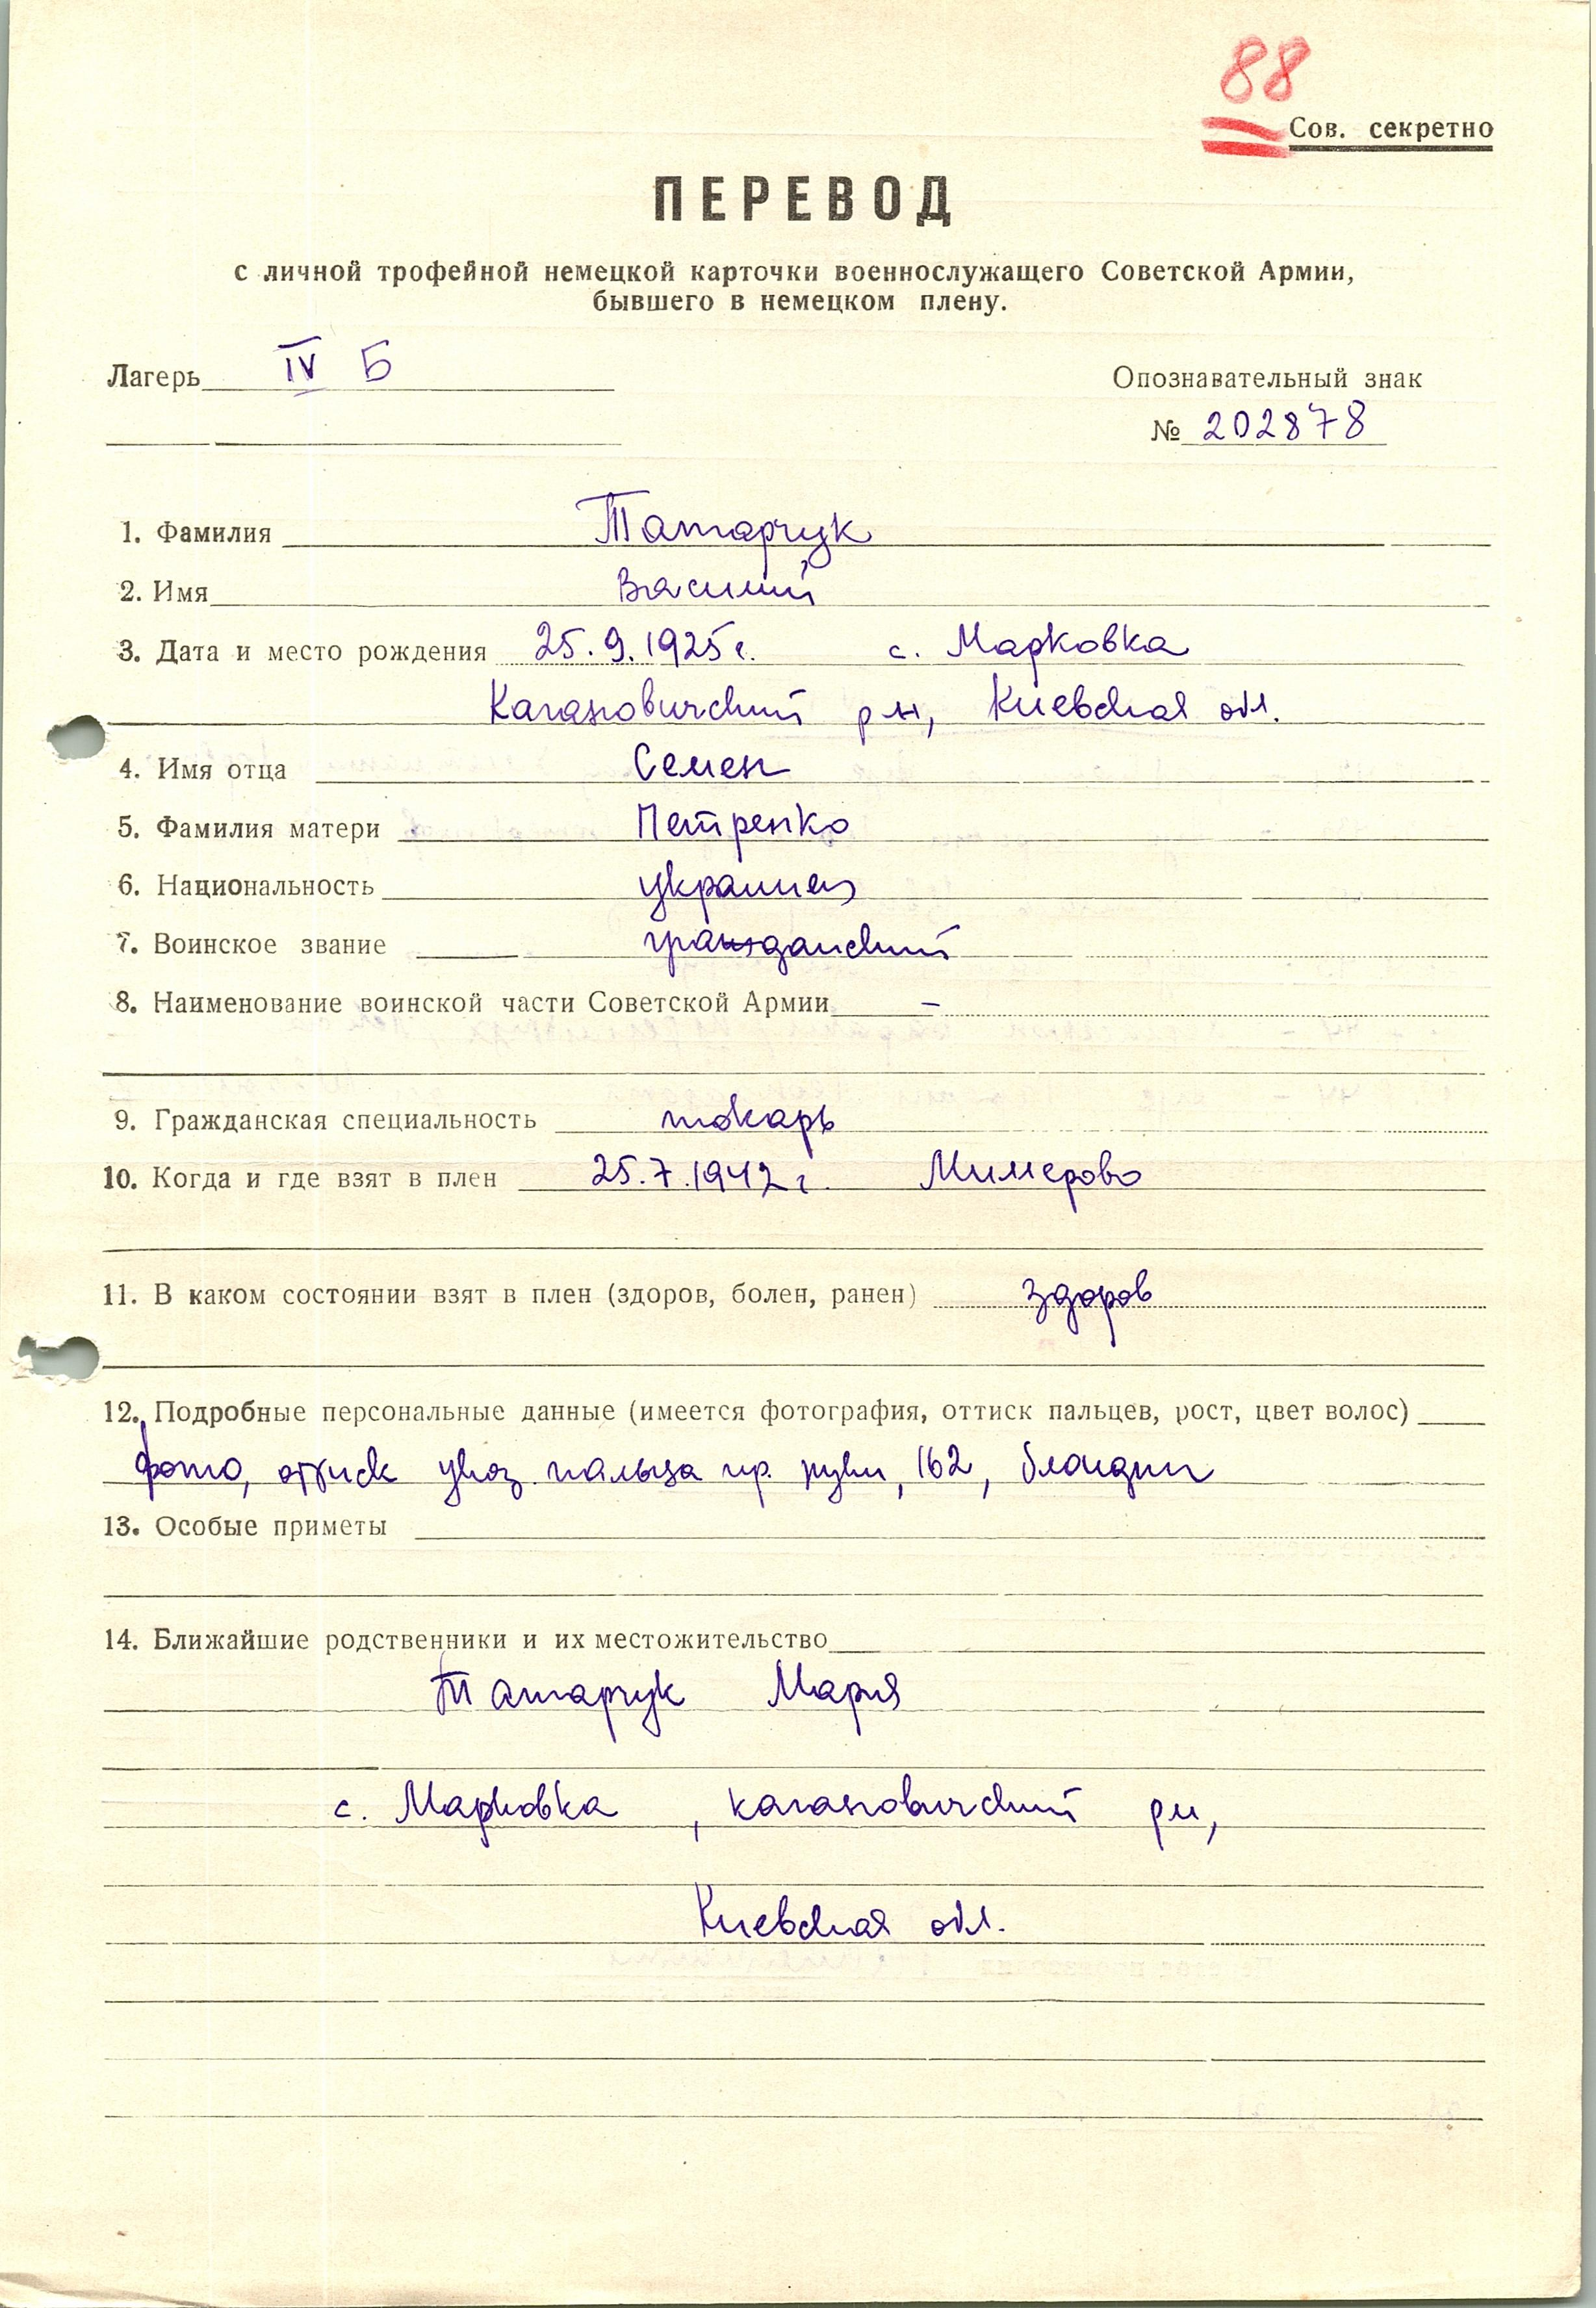 88
Сов. секретно
ПЕРЕВОД
с личной трофейной немецкой карточки военнослужащего Советской Армии,
бывшего в немецком плену.
Лагерь IV Б
Опознавательный знак
№ 202878
1. Фамилия Татарчук
2. Имя Василий
3. Дата и место рождения 25.9.1925 г. с. Марковка
Кагановичский р-н, Киевская обл.
4. Имя отца Семен
5. Фамилия матери Петренко
6. Национальность украинец
7. Воинское звание гражданский
8. Наименование воинской части Советской Армии –
9. Гражданская специальность токарь
10. Когда и где взят в плен 25.7.1942 г. Миллерово
11. В каком состоянии взят в плен (здоров, болен, ранен) здоров
12. Подробные персональные данные (имеется фотография, оттиск пальцев, рост, цвет волос)
фото, оттиск указ. пальца пр. руки, 162, блондин
13. Особые приметы
14. Ближайшие родственники и их местожительство
Татарчук Мария
с. Марковка, кагановичский р-н,
Киевская обл.